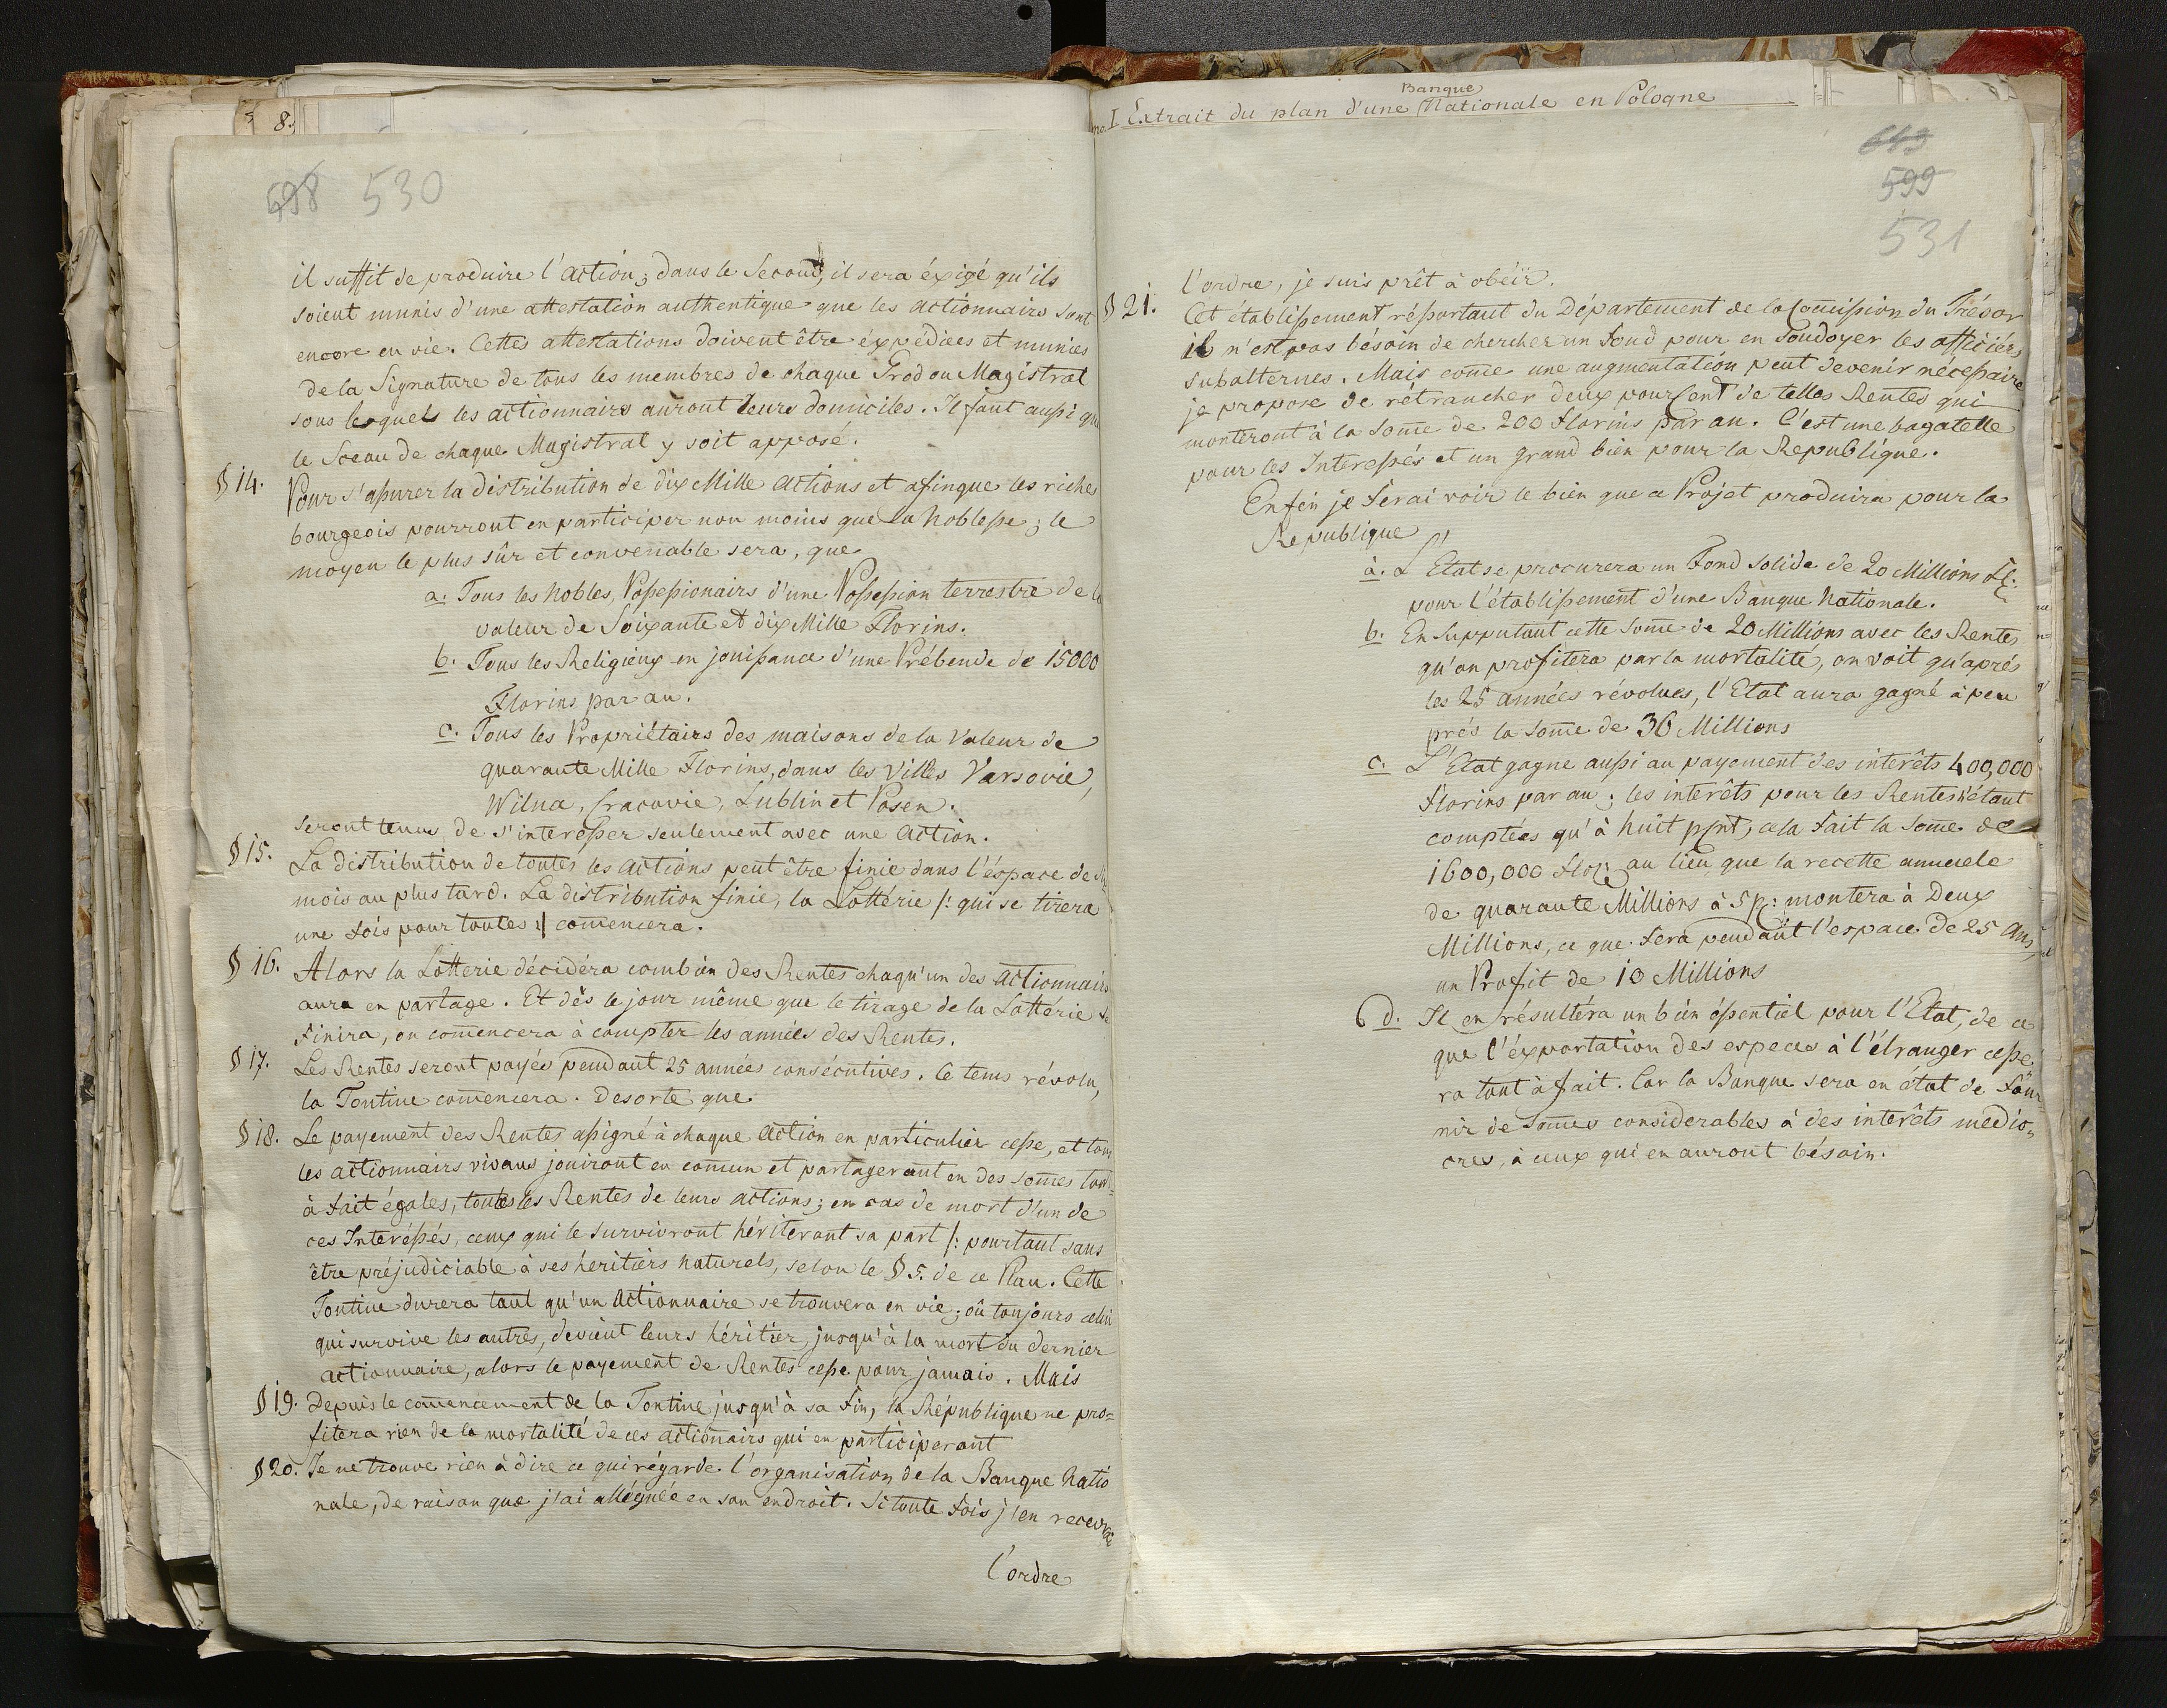 8.
598 530
il suffit de produire l'action; dans le Second, il sera éxigé qu'ils
soient munis d'une attestation authentique que les actionnairs sont
encore en vie. Cettes attestations doivent être éxpediées et munies
de la Signature de tous les membres de chaque Grod ou Magistrat
sous lesquels les actionnairs auront leurs domiciles. Il faut aussi que
le Sceau de chaque Magistrat y soit apposé.
§ 14. Pour s'assurer la distribution de dix Mille actions et afinque les riches
bourgeois pourront en participer non moins que la noblesse; le
moyen le plus sûr et convenable sera, que
a. Tous les nobles, Possessionairs d'une Possession terrestre de la
valeur de Soixante et dix Mille Florins.
b. Tous les Religieux en jouissance d'une Prébende de 15000
Florins par an.
c. Tous les Propriétairs des maisons de la Valeur de
quarante Mille Florins, dans les Villes Varsovie,
Wilna, Cracovie, Lublin et Posen.
seront tenus de s'interesser seulement avec une action.
§ 15. La distribution de toutes les actions peut être finie dans l'éspace de Six
mois au plus tard. La distribution finie, la Lottérie /: qui se tirera
une fois pour toutes :/ comencera.
§ 16. Alors la Lotterie décidéra combien des Rentes chaqu'un des actionnairs
aura en partage. Et dès le jour même que le tirage de la Lottérie se
finira, on comencera à compter les années des Rentes.
§ 17. Les Rentes seront payés pendant 25 années consécutives. Ce tems révolu,
la Tontine comencera. Desorte que
§ 18. Le payement des Rentes assigné à chaque action en particulier cesse, et tous
les actionnairs vivans jouiront en comun et partageront en des somes tout-
à fait égales, toutes les Rentes de leurs actions; en cas de mort d'un de
ces Intéréssés, ceux qui le Survivront hériteront sa part /: pourtant sans
être préjudiciable à ses héritiers naturels, selon le § 5. de ce Plan. Cette
Tontine durera tant qu'un Actionnaire se trouvera en vie; où toujours celui
qui survive les autres, devient leurs héritier, jusqu'à la mort du dernier
actionnaire, alors le payement de Rentes cesse pour jamais. Mais
§ 19. Depuis le comencement de la Tontine jusqu'à sa fin, la République ne pro=
fitera rien de la mortalité de ces actionairs qui en participeront
§ 20. Je ne trouve rien à dire ce qui régarde l'organisation de la Banque Natio
nale, de raison que j'ai alléguée en son endroit. Si toute fois j'en recevrai
l'ordre
no. I Extrait du plan d'une Banque Nationale en Pologne
643
599
531
l'ordre, je suis prêt à obéïr.
§ 21. Cet établissement réssortant du Département de la Comission du Trésor
il n'est pas bésoin de chercher un fond pour en Soudoyer les officiers
subalternes. Mais come une augmentation peut devenir nécessaire
je propose de rétrancher deux pour Cent de telles Rentes qui
monteront à la some de 200 florins par an. C'est une bagatelle
pour les Interessés et un grand bien pour la Republique.
Enfin je ferai voir le bien que ce Projet produira pour la
Republique
a. L'Etat se procurera un Fond solide de 20 Millions fl:
pour l'établissement d'une Banque Nationale.
b. En Supputant cette some de 20 Millions avec les Rentes
qu'on profitera par la mortalité, on voit qu'aprés
les 25 années révolues, l'Etat aura gagné à peu
prés la some de 36 Millions
c. L'Etat gagne aussi au payement des interêts 400,000
florins par an; les interêts pour les Rentes n'étant
comptées qu'à huit pCnt, cela fait la some de
1600,000 flor: au lieu que la recette annuele
de quarante Millions à 5 pC: montera à Deux
Millions, ce que fera pendant l'espace de 25 ans,
un Profit de 10 Millions
d. Il en résultéra un bien éssentiel pour l'Etat, de ce
que l'éxportation des especes à l'étranger cesse
ra tout à fait. Car la Banque sera en état de four-
nir de somes considerables à des interêts medio-
cres, à ceux qui en auront bésoin.